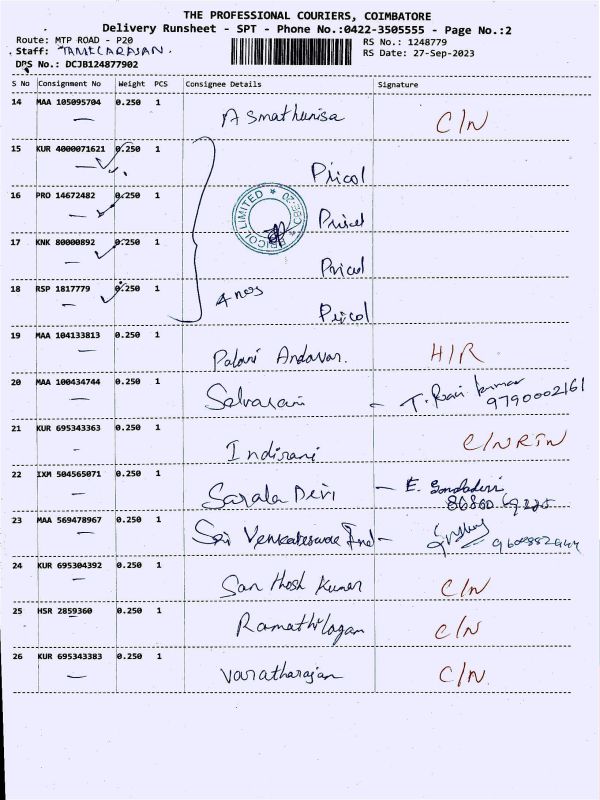 THE PROFESSIONAL COURIERS, COIMBATORE
Delivery Runsheet - SPT - Phone No.:0422-3505555 - Page No.:2
Route: MTP ROAD - P20 RS No.: 1248779
Staff: RS Date: 27-Sep-2023
DRS No.: DCJB124877902
S No Consignment No Weight PCS Consignee Details Signature
14 MAA 105095704 0.250 1 Asmathunisa C/N
15 KUR 4000071621 0.250 1 Pricol
16 PRO 14672482 0.250 1 Pricol
PRICOL LIMITED
17 KNK 80000892 0.250 1 Pricol
18 RSP 1817779 0.250 1 4 nos Pricol
19 MAA 104133813 0.250 1 Palani Andavar. H/R
20 MAA 100434744 0.250 1 Selvarani - T. Ravi kumar
9790002161
21 KUR 695343363 0.250 1 Indirani C/NRTN
22 IXM 504565071 0.250 1 Sarala Devi - E.
23 MAA 569478967 0.250 1 Sri Venkateswara Ind -
24 KUR 695304392 0.250 1 Santhosh Kumar C/N
25 HSR 2859360 0.250 1 Ramathilagam C/N
26 KUR 695343383 0.250 1 Varatharajan C/N